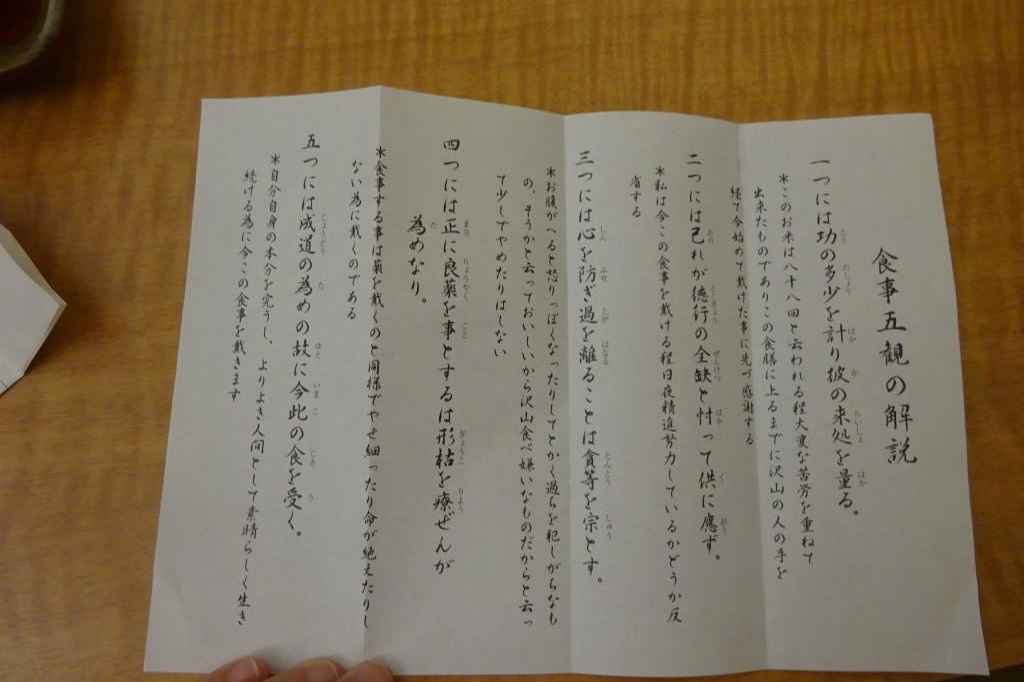 食事五観の解説
一つには功の多少を計り彼の来処を量る。
＊このお米は八十八回と云われる程大変な苦労を重ねて
出来たものでありこの食膳に上るまでに沢山の人の手を
経て今始めて戴けた事に先づ感謝する
二つには己れが徳行の全缺と忖って供に應ず。
＊私は今この食事を戴ける程日夜精進努力しているかどうか反
省する
三つには心を防ぎ過を離ることは貪等を宗とす。
＊お腹がへると怒りっぽくなったりしてとかく過ちを犯しがちなも
の、そうかと云っておいしいから沢山食べ嫌いなものだからと云っ
て少しでやめたりはしない
四つには正に良薬を事とするは形枯を療ぜんが
為めなり。
＊食事する事は薬を戴くのと同様でやせ細ったり命が絶えたりし
ない為に戴くのである
五つには成道の為めの故に今此の食を受く。
＊自分自身の本分を完うし、よりよき人間として素晴らしく生き
続ける為に今この食事を戴きます